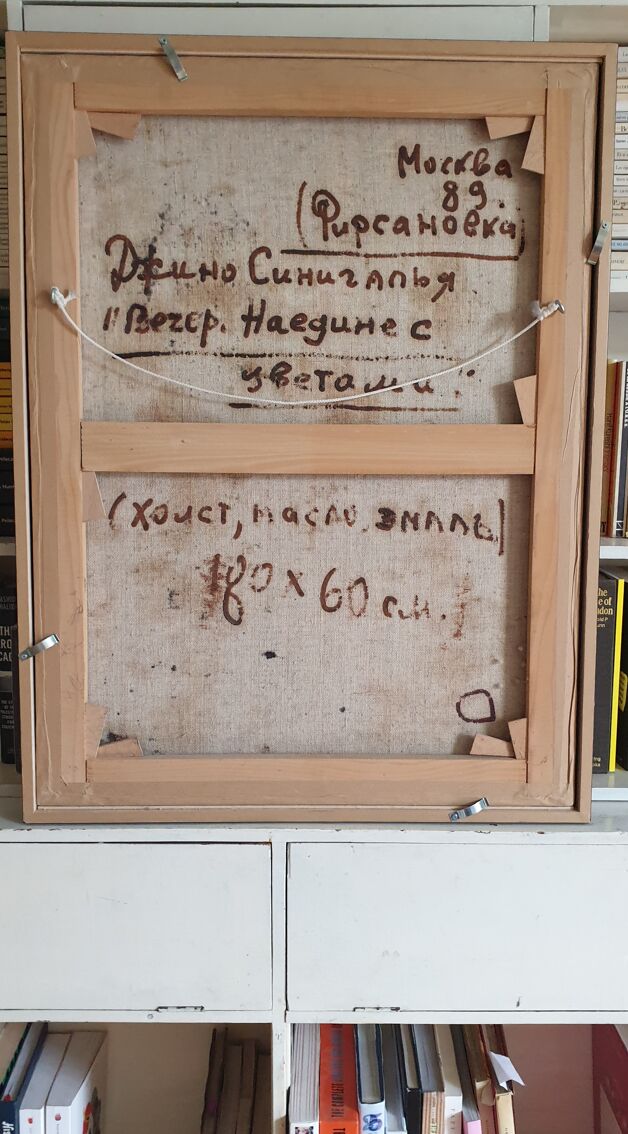 Москва
89.
(Фирсановка)
Джино Синигалья
"Вечер. Наедине с
цветами"
(холст, масло. эмаль)
80 x 60 см.